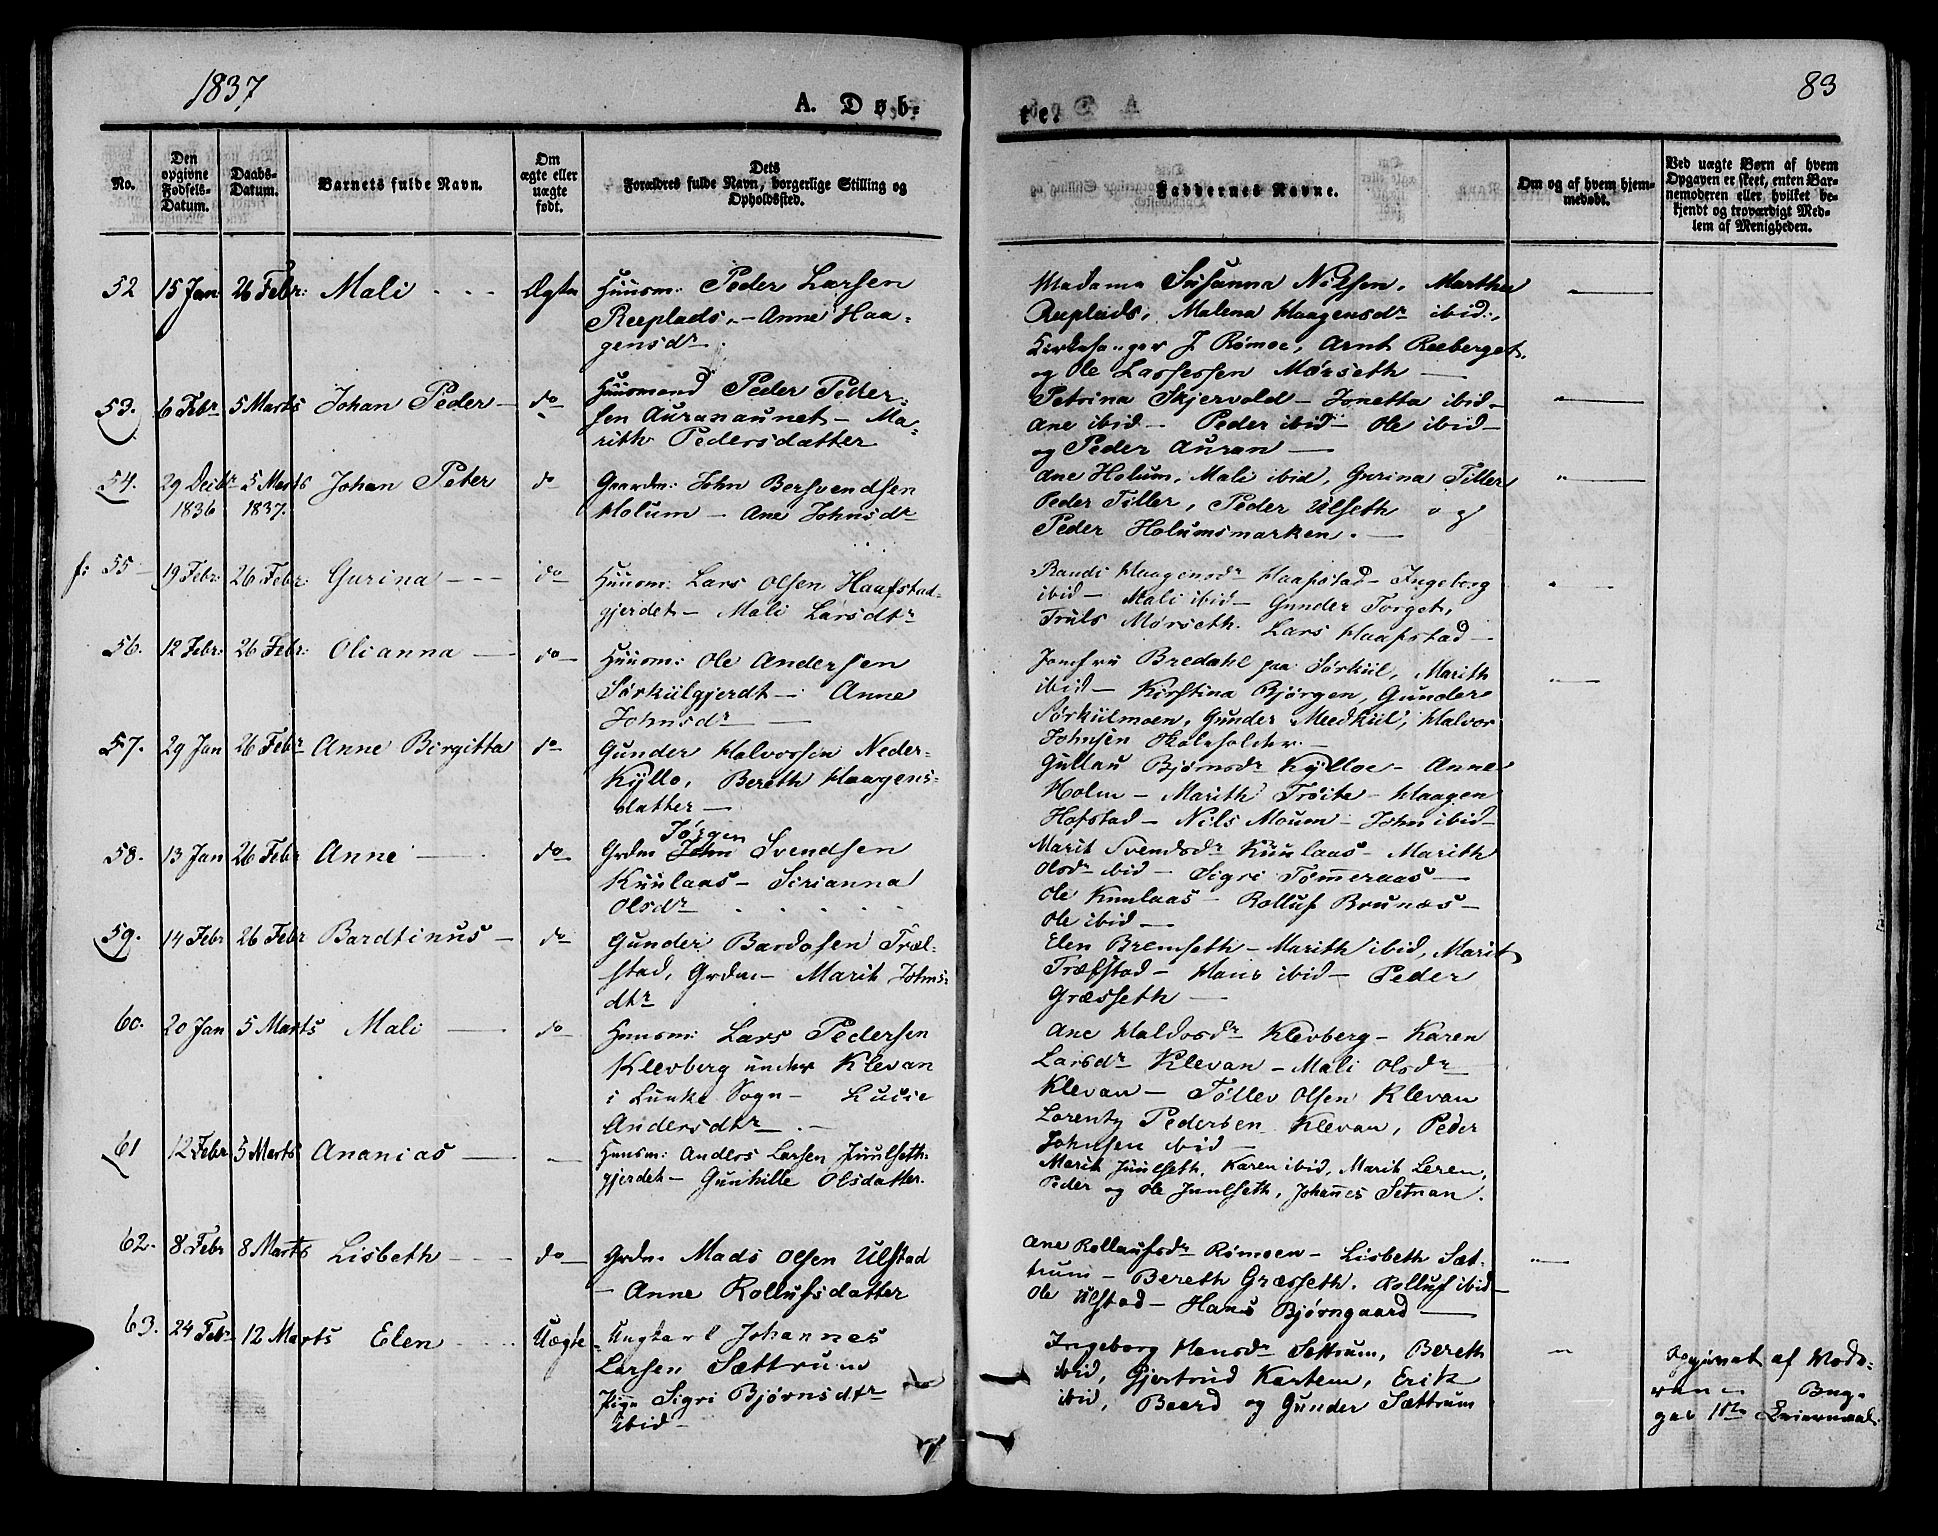 1837
A. Døb-
te.
83
No.
Den opgivne Fødsels-Datum.
Daabs-Datum.
Barnets fulde Navn.
Om ægte eller uægte født.
Dets Forældres fulde Navn, borgerlige Stilling og Opholdssted.
Faddernes Navne.
Om og af hvem hjem-medøbt.
Ved uægte Børn af hvem Opgaven er skeet, enten Bar-nemoderen eller hvilket be-kjendt og troværdigt Med-lem af Menigheden.
52 15 Jan 26 Febr: Mali - - - Ægte Huusm: Peder Larsen
Reeplads, - Anne Haa-
gensdr.
Madame Susanna Nilsen, Martha
Reeplads, Malena Haagensdr ibid:,
Kirkesanger J. Rømoe, Arnt Reeberget,
og Ole Lassessen Mørseth —
53. 6 Febr 5 Marts Johan Peder — do Huusmand Peder Peder-
sen Auranaunet - Ma-
rith Pedersdatter
Petrina Skjervold - Jonetta ibid -
Ane ibid - Peder ibid - Ole ibid -
og Peder Auran —
54. 29 Decbr 1836 5 Marts 1837. Johan Peter do Gaardm: John Bersvendsen
Holum - Ane Johnsdr
Ane Holum, Mali ibid, Gurina Tiller
Peder Tiller, Peder Ulseth og
Peder Holumsmarken. —
f: 55 19 Febr: 26 Febr: Gurina - - - do Huusm: Lars Olsen Haafstad-
gjerdet - Mali Larsdtr
Randi Haagensdr Haafstad - Ingeborg
ibid - Mali ibid - Gunder Torget,
Truls Mørseth. Lars Haafstad -
56. 12 Febr: 26 Febr: Olianna — do Huusm: Ole Andersen
Sørkiilgjerdt - Anne
Johnsdr —
Jomfru Bredahl paa Sørkiil, Marith
ibid - Kirstina Bjørgen, Gunder
Sørkiilmoen, Gunder Meedkiil, Halvor
Johnsen Skoleholder. -
57. 29 Jan 26 Febr Anne Birgitta do Gunder Halvorsen Neder-
Kyllo, Bereth Haagens-
datter —
Gullau Bjørnsdr Kylloe - Anne
Holm - Marith Trøite - Haagen
Hofstad - Nils Moum - John ibid -
58. 13 Jan 26 Febr Anne — do Grdm Jørgen John Svendsen
Kuulaas - Sirianna
Olsdr
Marit Svendsdr Kuulaas - Marith
Olsdr ibid - Sigri Tømeraas —
Ole Kuulaas - Rolluf Brunæs -
Ole ibid —
59. 14 Febr 26 Febr Bardtinus - do Gunder Bardosen Træf-
stad, Grdm - Marit Johns-
dtr
Elen Bremseth - Marith ibid, Marit
Træfstad - Hans ibid - Peder
Græsseth —
60. 20 Jan 5 Marts Mali — do Huusm: Lars Pedersen
Klevberg under Klevan
i Lunke Sogn - Lucie
Andersdtr
Ane Haldosdr Klevberg - Karen
Larsdr Klevan - Mali Olsdr
Klevan - Tøllev Olsen Klevan
Lorentz Pedersen Klevan, Peder
Johnsen ibid -
61 12 Febr 5 Marts Ananias — — Huusm: Anders Larsen Juulseth-
gjerdet - Gunhille Olsdatter.
Marit Juulseth, Karen ibid, Marit Leren,
Peder og Ole Juulseth, Johanes Setnan.
62. 8 Febr 8 Marts Lisbeth — do Grdm Mads Olsen Ulstad
- Anne Rollufsdatter
Ane Rollaufsdr Rømoen - Lisbeth Sæt-
trum - Bereth Græsseth. Rolluf ibid -
Ole Ulstad - Hans Bjørngaard —
63. 24 Febr 12 Marts Elen - - - Uægte Ungkarl Johannes
Larsen Sættrum
Pige Sigri Bjørnsdtr
ibid -
Ingeborg Hansdr Sættrum, Bereth
ibid, Gjertrud Kartem, Erik
ibid, Baard og Gunder Sættrum
Opgivet af Mode-
ren - Beg-
ges 1ste Leiermaal.